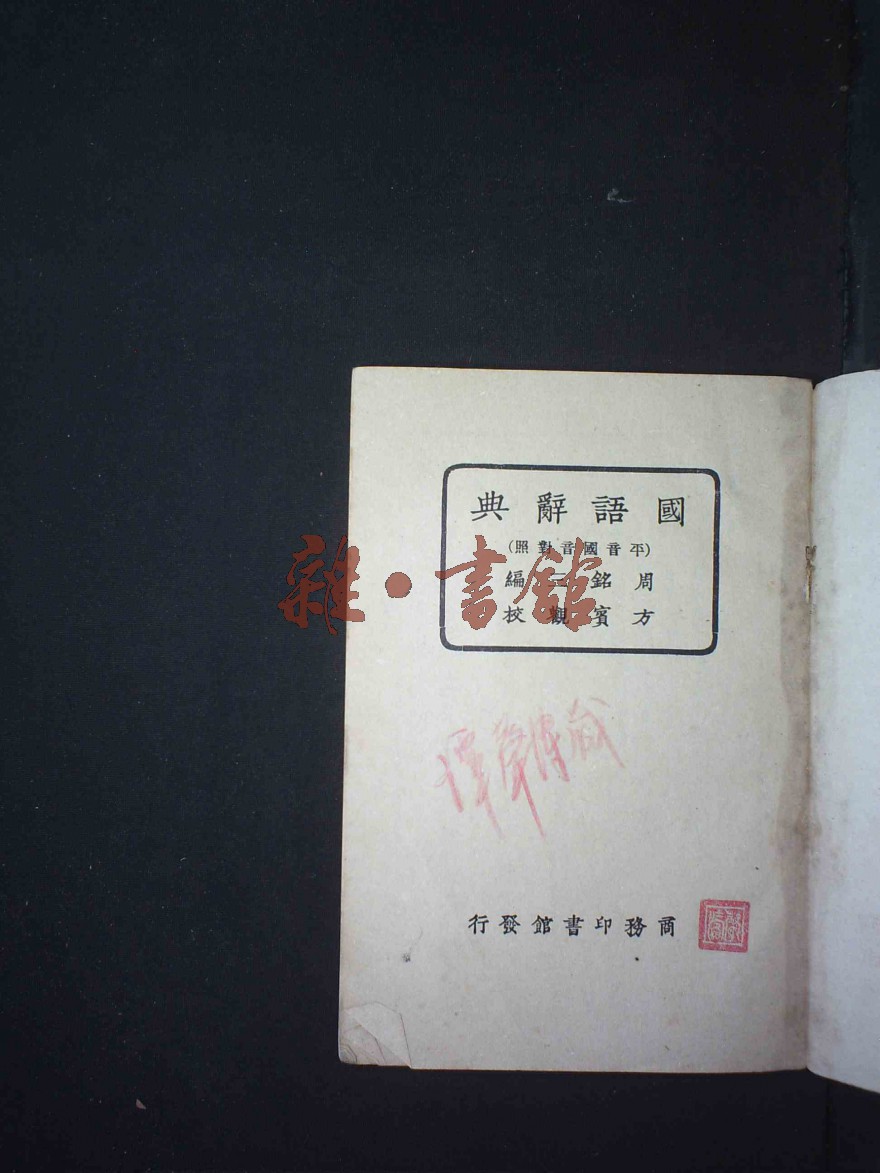 國語辭典
(平音國音對照)
周銘三編
方賓觀校
雜·書館
商務印書館發行